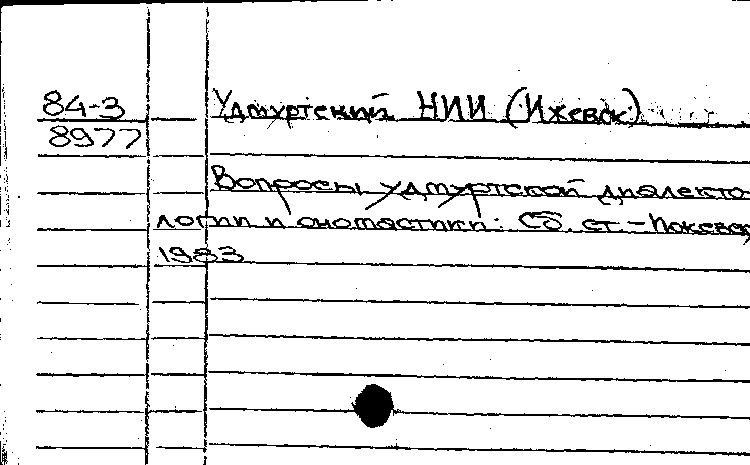 84-3 Удмуртский НИИ (Ижевск)
8977
Вопросы удмуртской диалекто
логии и ономастики: Сб. ст. - Ижевск,
1983